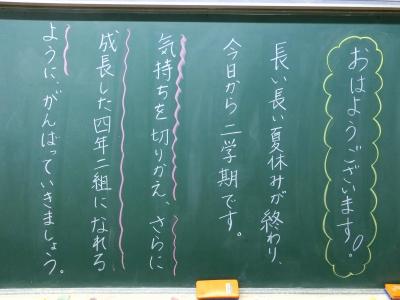 おはようございます。
長い長い夏休みが終わり、
今日から二学期です。
気持ちを切りかえ、さらに
成長した四年二組になれる
ように、がんばっていきましょう。